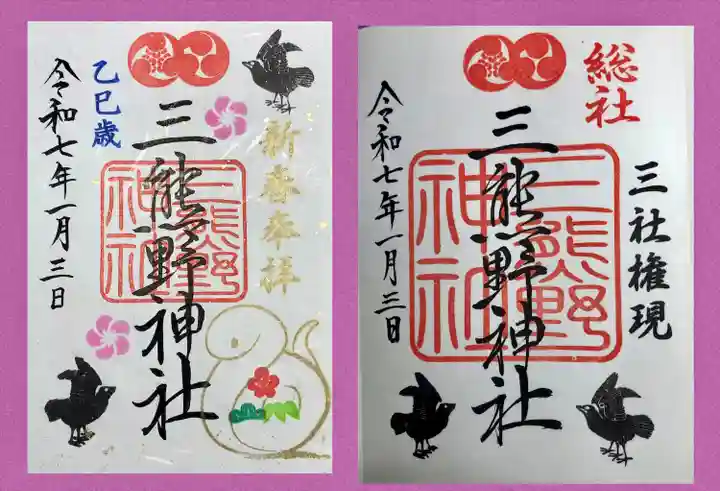 新春奉拝
三熊野神社
三熊野
神社
乙巳歳
令和七年一月三日
総社
三社権現
三熊野神社
三熊野
神社
令和七年一月三日